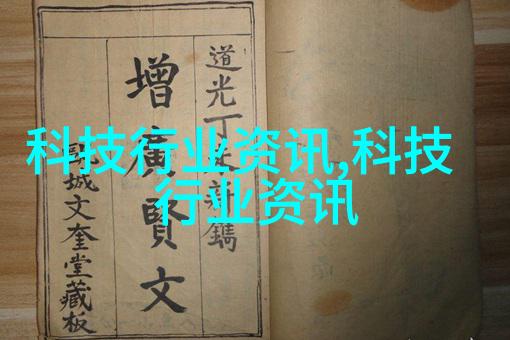 科技行业资讯,科技
行业资讯
道光丁未新鐫
增廣賢文
城文奎堂藏板